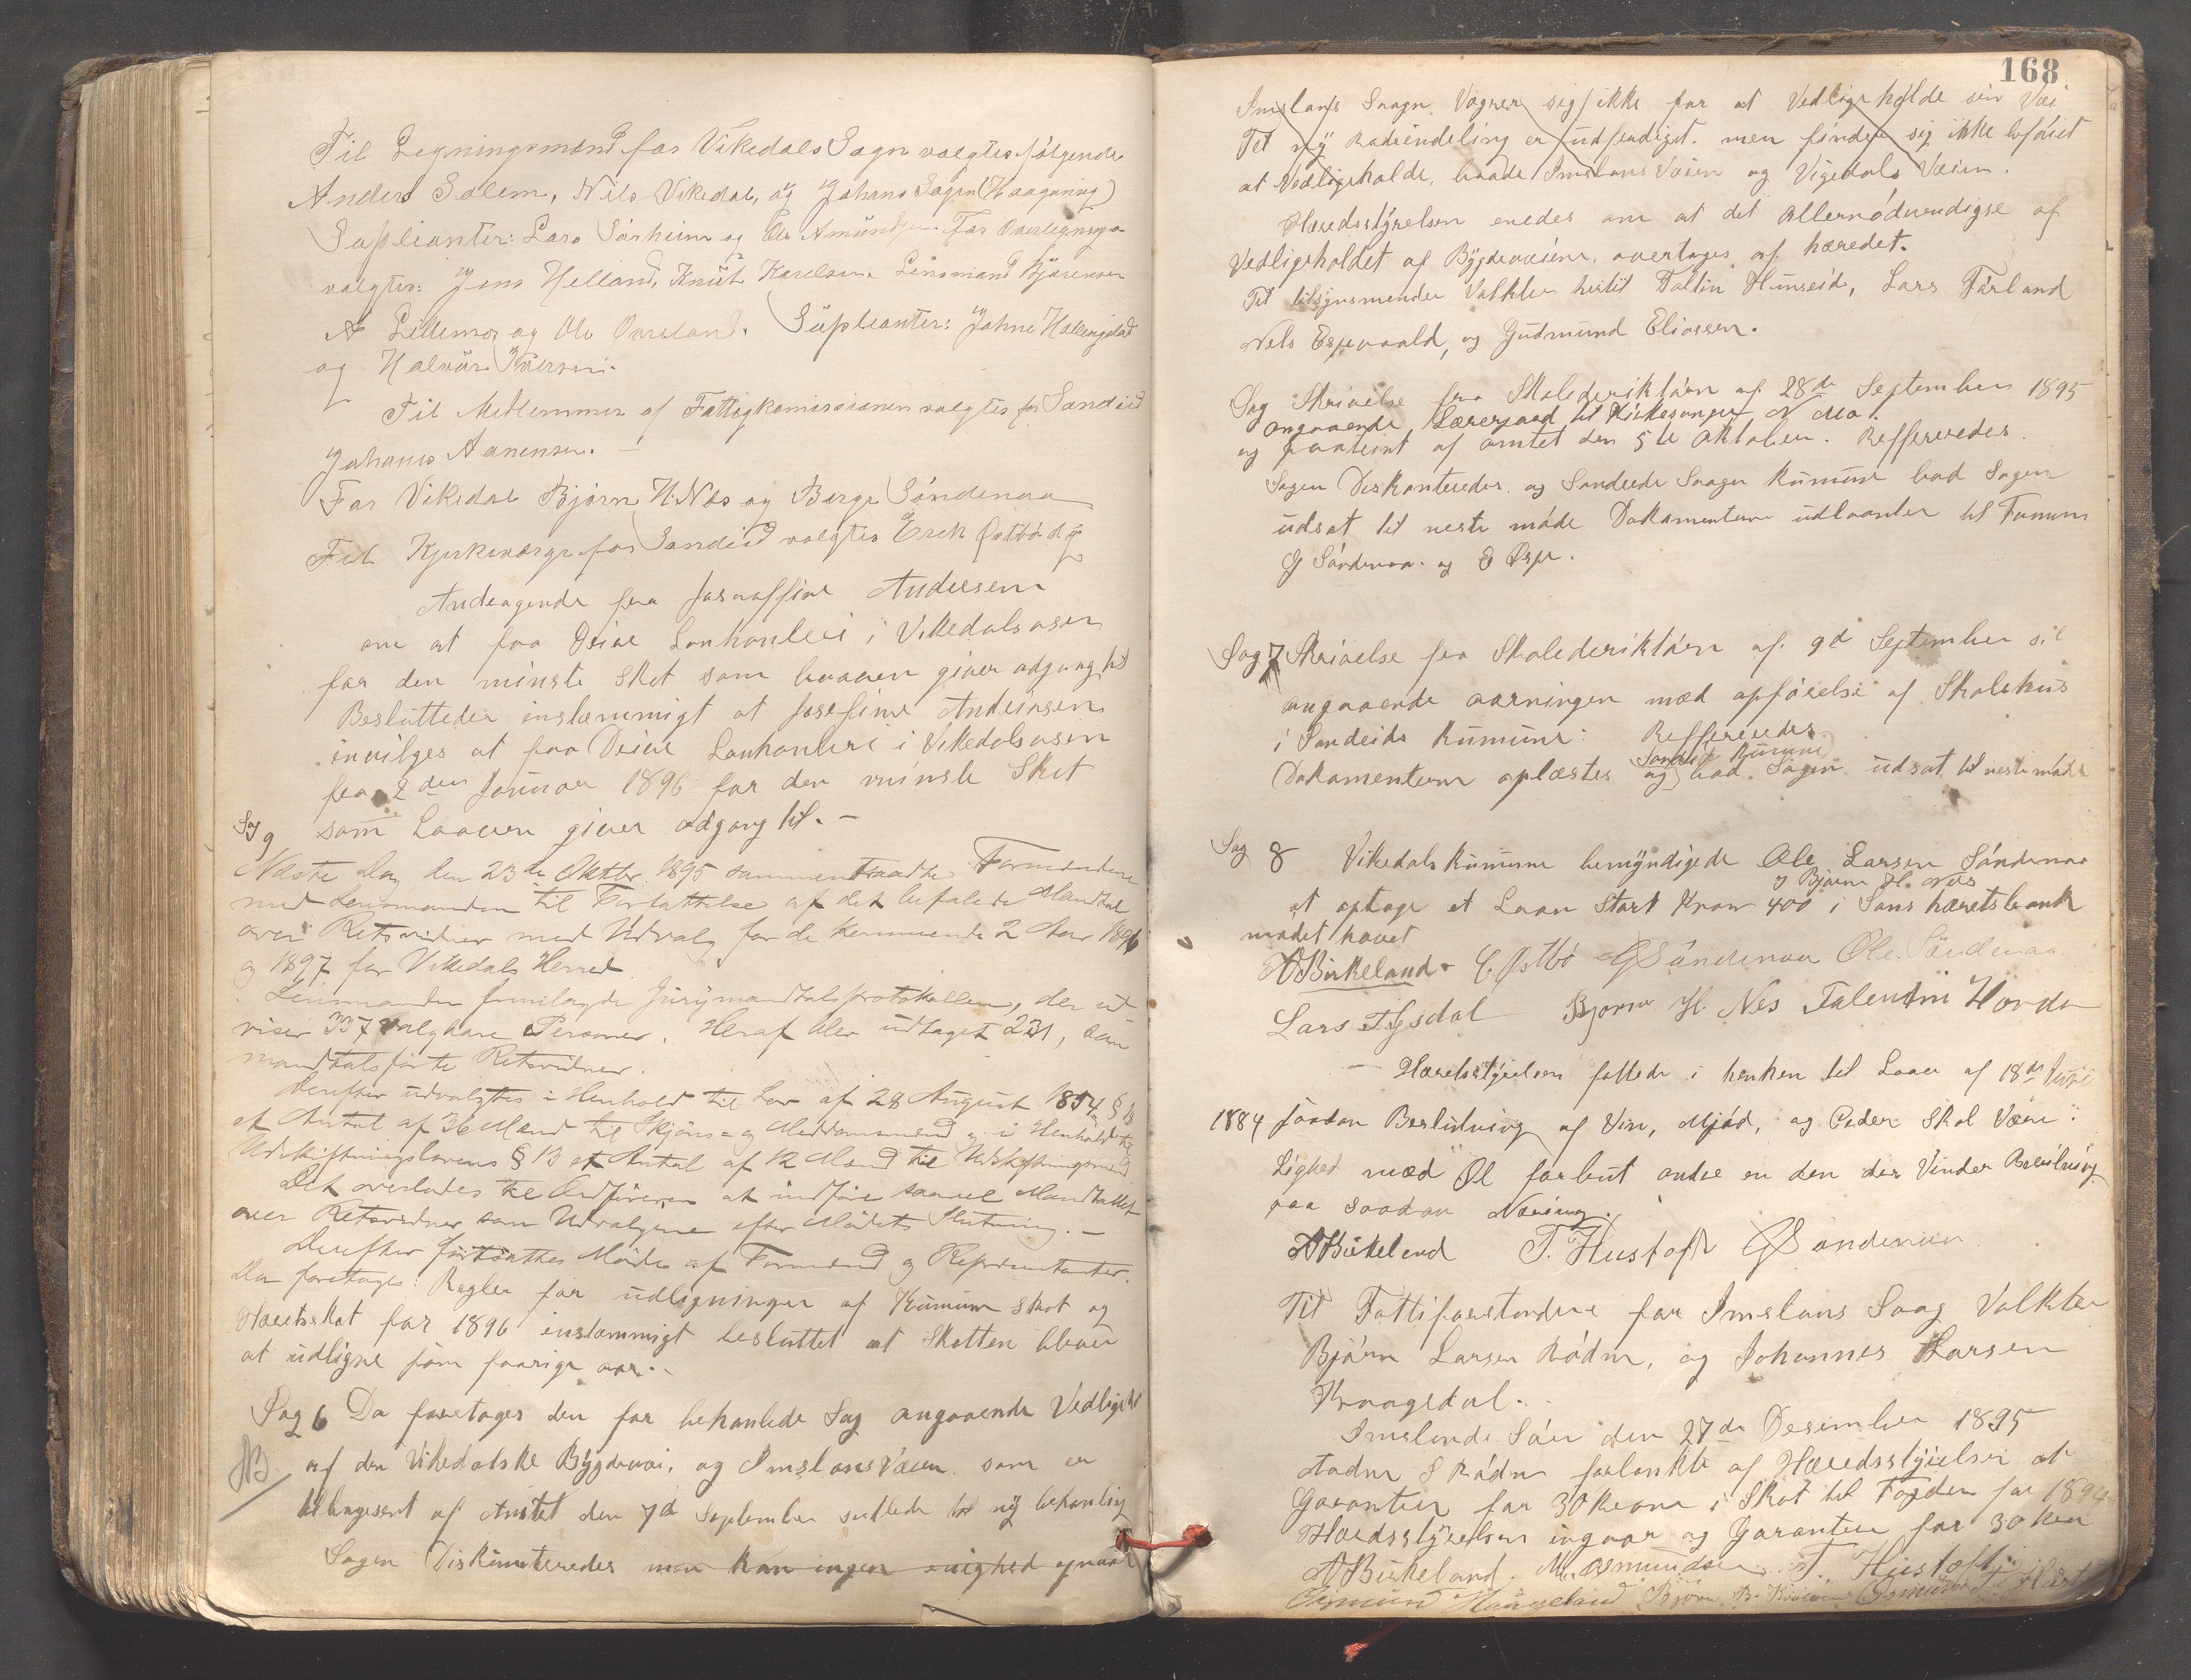 Til Legningsmænd for Vikedals Sogn valgtes følgende
Anders Salem, Nils Vikedal, og Johans Sagen (Haaganæs)
Supleanter: Lars Sørheim og Ole Amundsen. For Overlignings
valgtes: Jens Helland, Knut Karelsen Lensmand Bjørensen
A Lillemos og Ole Ovreland. Supleanter: Johne Hallengstad
og Halvar Iversen.
Til Medlemmer af Fattigkomissionen valgtes for Sandeid
Johanes Aanensen.
For Vikedal Bjørn H. Nes og Berge Søndenaa
Til Kjerkeværge for Sandeid valgtes Erek Østbødg
Andragende fra Joseffine Andersen
om at faa Drive Lanhanleri i Vikedalsosen
for den minste Skat som loven giver adgang til
Besluttedes enstemmigt at Josefine Andersen
invilges at faa Drive Lanhanleri i Vikedalsosen
fra 2den Januar 1896 for den minste Skat
som Loven giver adgang til. –
Sag 9
Næste Dag den 23de Oktbr. 1895 sammentraadte Formændene
med Lensmanden til Forfattelse af det befalede Mandtal
over Retsvidner med Udvalg for de kommende 2 Aar 1896
og 1897 for Vikedals Herred.
Lensmanden fremlagde Jurymandtalsprotokollen, der ud-
viser 337 valgbare Personer. Heraf blev udtaget 231, som
mandtalsførte Retsvidner.
Derefter udvalgtes i Henhold til Lov af 28 August 1854 § 13
et Antal af 36 Mænd til Skjøns- og Meddomsmænd og i Henhold til
Udskiftningslovens § 13 et Antal af 12 Mænd til Udskiftningsmænd
Det overlodes til Ordføreren at indføre saavel Mandtallet
over Retsvidner som Udvalgene efter Mødets Slutning. –
Derefter fortsattes Møde af Formænd og Representanter.
Da foretages: Regler for udligninger af Kumune skat og
Hæretsskat for 1896 enstemmigt besluttet at Skatten bliver
at udligne som faarige aar.
Sag 6 Da foretages den før behanlede Sag angaaende Vedligehol
NB. af den Vikedalske Bygdevei, og Imslans Væien som er
tilbagesent af Amtet den 7de September sidstlede til ny behanling
Sagen Diskuuteredes men kan ingen enighed opnaaes
168
Imslans Saagn Vægrer sig ikke for at Vedligeholde sin Vei
Til ny Rodeindeling er udferdiget. men finder sig ikke beføiet
at Vedligeholde, baade Imslans Væien og Vigedals Væien.
Hæredsstyrelsen enedes om at det Allernødvendigse af
Vedligeholdet af Bygdevæiene, overtages af hæredet.
Til tilsynsmender Valkter hertil Taltin Hunseid, Lars Førland
Nels Espevaald, og Gudmund Eliassen.
Sag Skrivelse fra Skolederiktøren af 28de September 1895
angaaende Lærerpaad til Kirkesanger N Mo.
og paateint af amtet den 5te Oktober. Refferredes.
Sagen Diskonteredes og Sandeide Saagn Kumune bad Sagen
udsat til neste møde Dokamenterne udlaantes til Formen
G Søndenaa. og E Øspe.
Sag 7 Skrivelse fra Skolederiktøren af 9de September sil
angaaende aarningen mæd opførelse af Skolehus
i Sandeids Kumune: Refferredes
Sandeid Kumune
Dokamenterne oplæstes og bad Sagen udsat til neste møde
Sag 8 Vikedals Kumune bemyndigede Ole Larsen Søndenaa
og Bjørn H. Nes
at optage et Laan Stort Kron 400 i Sans hæretsbank
mødet hævet
A Birkeland E. Østbø G Søndenaa Ole. Søndenaa
Lars Tysdal Bjørn H. Nes Talentin Hovda
– Hæretsstyrelsen fattede i henhen til Laaw af 18de Juni
1884 saadan Beslutning af Vin, Mjød, og Ceder Skal Være i
Lighed mæd Øl forbut andre en den der Vinder Bevilning
paa saadan Næring.
A Birkeland T. Hustoft G Søndenaa
Til Fattiforstandere for Imslans Saag Valkter
Bjørn Larsen Rødne, og Johannes Larsen
Kraagedal.
Imslands Søen den 27de Desember 1895
Aadne S Rødne forlankte af Hæredsstyrelsen at
Garantien for 30 Krone i Skat til Fogden for 1894
Hæredsstyrelsen ingaar og Garantere for 30 Kron
A Birkeland. M. Asmundsen. T. Hustoft